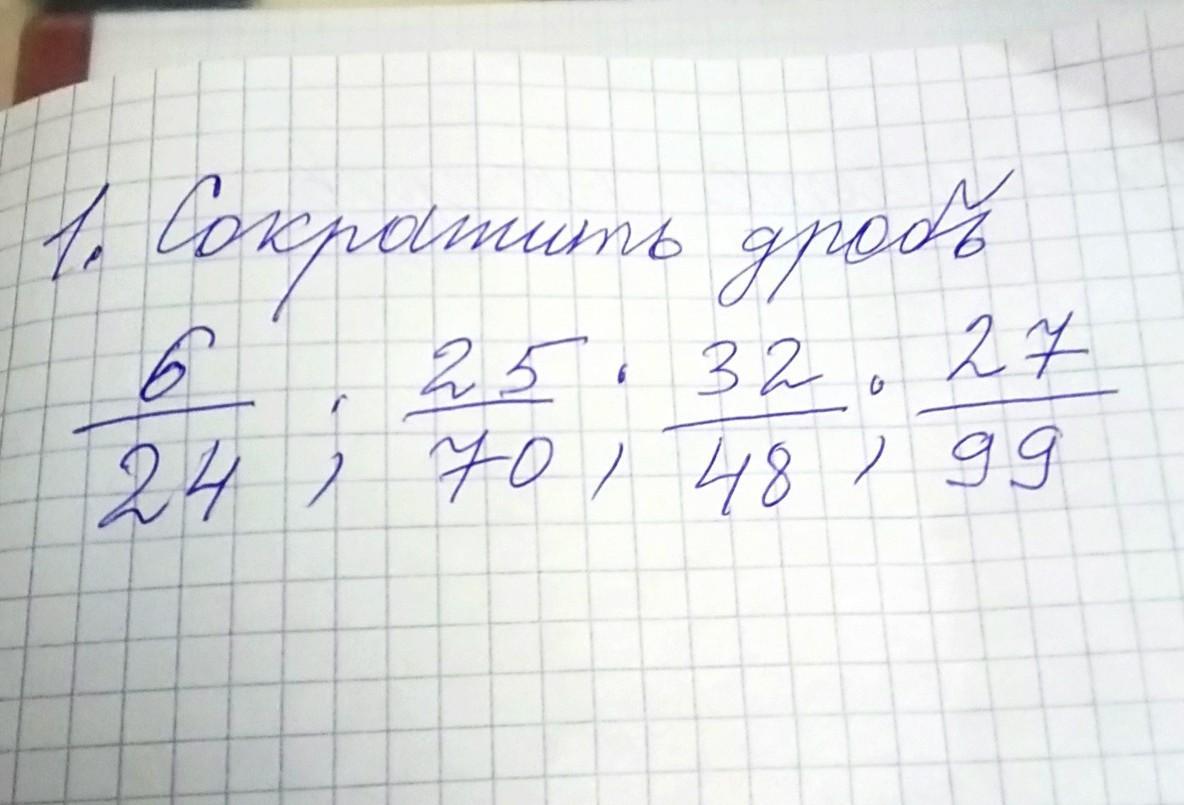 1. Сократить дробь
6/24 ; 25/70 ; 32/48 ; 27/99